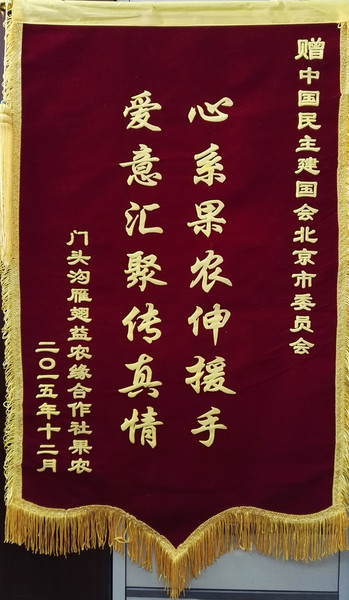 赠中国民主建国会北京市委员会
心系果农伸援手
爱意汇聚传真情
门头沟雁翅益农缘合作社果农
二〇一五年十二月